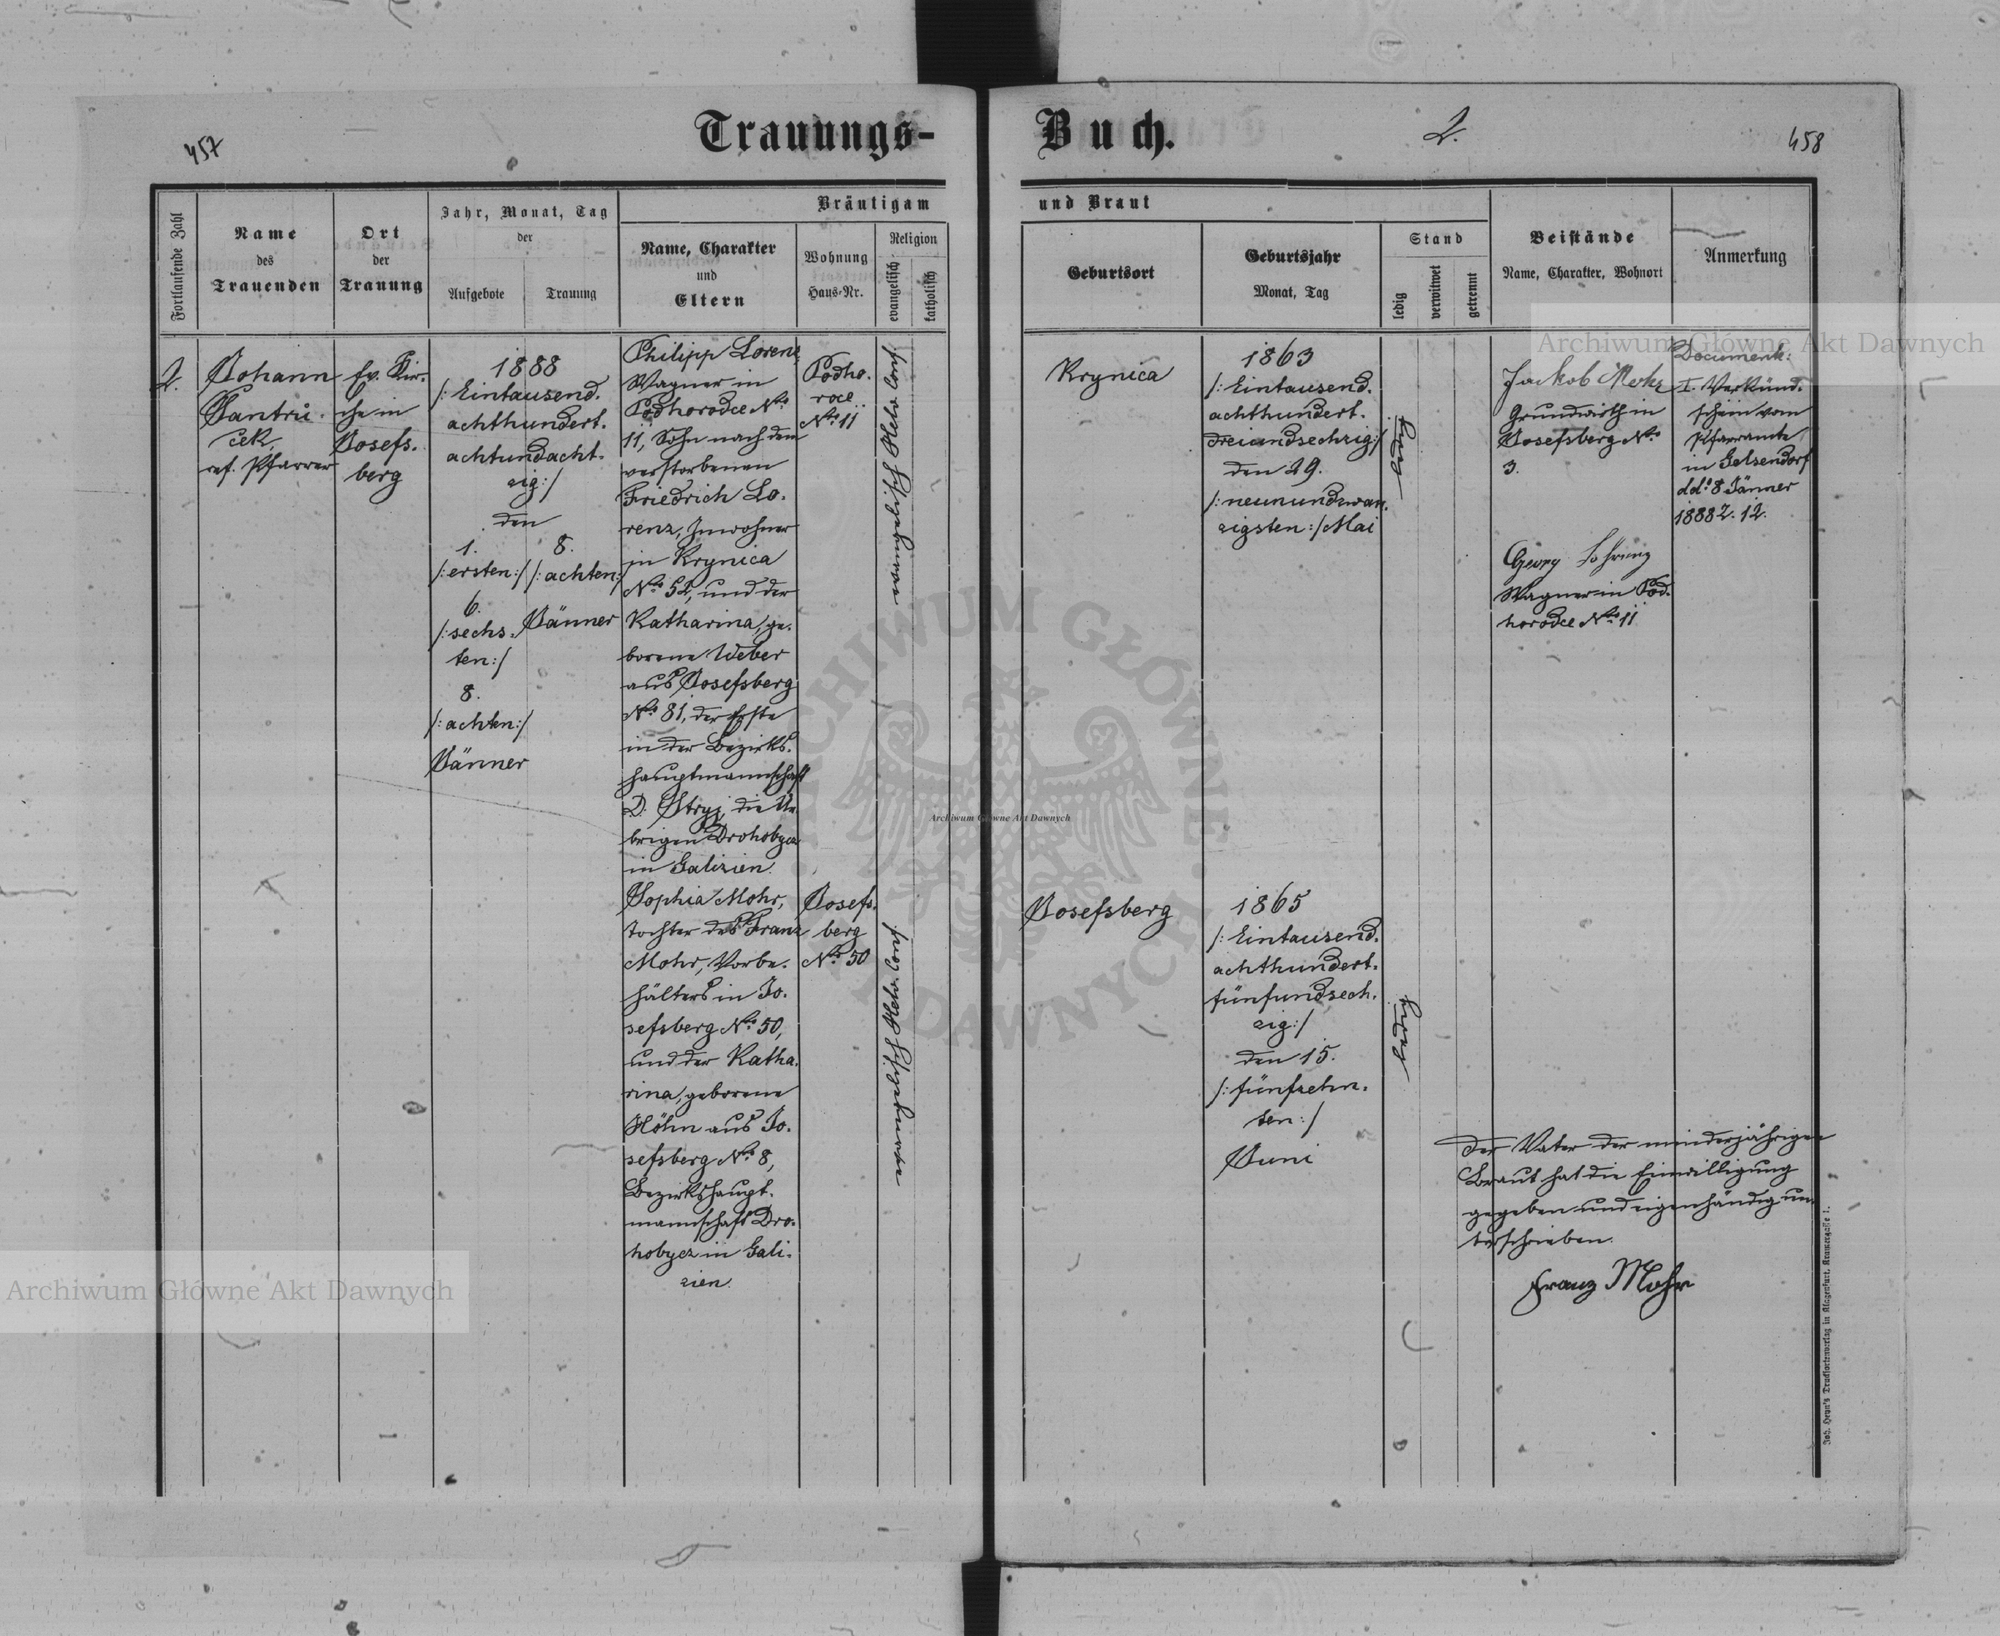 457
Trauungs-
Buch.
2.
458
Fortlaufende Zahl
Name
des
Trauenden
Ort
der
Trauung
Jahr, Monat, Tag
der
Aufgebote
Trauung
Bräutigam
und Braut
Name, Charakter
und
Eltern
Wohnung
Haus-Nr.
Religion
evangelisch
katholisch
Geburtsort
Geburtsjahr
Monat, Tag
Stand
ledig
verwitwet
getrennt
Beistände
Name, Charakter, Wohnort
Anmerkung
2.
Johann
Jantru-
ček,
ref. Pfarrer
Ev. Kir-
che in
Josefs-
berg
1888
/: Eintausend-
achthundert-
achtundacht-
zig :/
den
1.
/: ersten :/
6.
/: sechs-
ten :/
8.
/: achten :/
Jänner
8.
/: achten :/
Jänner
Philipp Lorenz
Wagner in
Podhorodce No
11, Sohn nach dem
verstorbenen
Friedrich Lo-
renz, Inwohner
in Krynica
No 52, und der
Katharina, ge-
borene Weber
aus Josefsberg
No 81, der Erste
in der Bezirks-
hauptmannschaft
D. Stryj, die Ue-
brigen Drohobycz
in Galizien.
Podho-
roce
No 11
evangelisch Helv. Conf.
Krynica
1863
/: Eintausend-
achthundert-
dreiundsechzig :/
den 29.
/: neunundzwan-
zigsten :/ Mai
ledig
Jackob Mohr
Grundwirth in
Josefsberg No
3.
Georg Löhring
Wagner in Pod-
horodce No 11
Document:
I. Verkünd-
schein vom
Pfarramte
in Gelsendorf
dd. 8 Jänner
1888 Z. 12.
Sophia Mohr,
Tochter des Franz
Mohr, Vorbe-
hälters in Jo-
sefsberg No 50,
und der Katha-
rina, geborene
Höhn aus Jo-
sefsberg No 8,
Bezirkshaupt-
mannschaft Dro-
hobycz in Gali-
zien.
Josefs-
berg
No 50
evangelisch Helv. Conf.
Josefsberg
1865
/: Eintausend-
achthundert-
fünfundsech-
zig :/
den 15.
/: fünfzehn-
ten :/
Juni
ledig
Der Vater der minderjährigen
Braut hat die Einwilligung
gegeben und eigenhändig un-
terschrieben.
Franz Mohr
Joh. Heyn's Drucksortenverlag in Klagenfurt, Kramergasse 1.
Archiwum Główne Akt Dawnych
Archiwum Główne Akt Dawnych
Archiwum Główne Akt Dawnych
ARCHIWUM GŁÓWNE AKT DAWNYCH